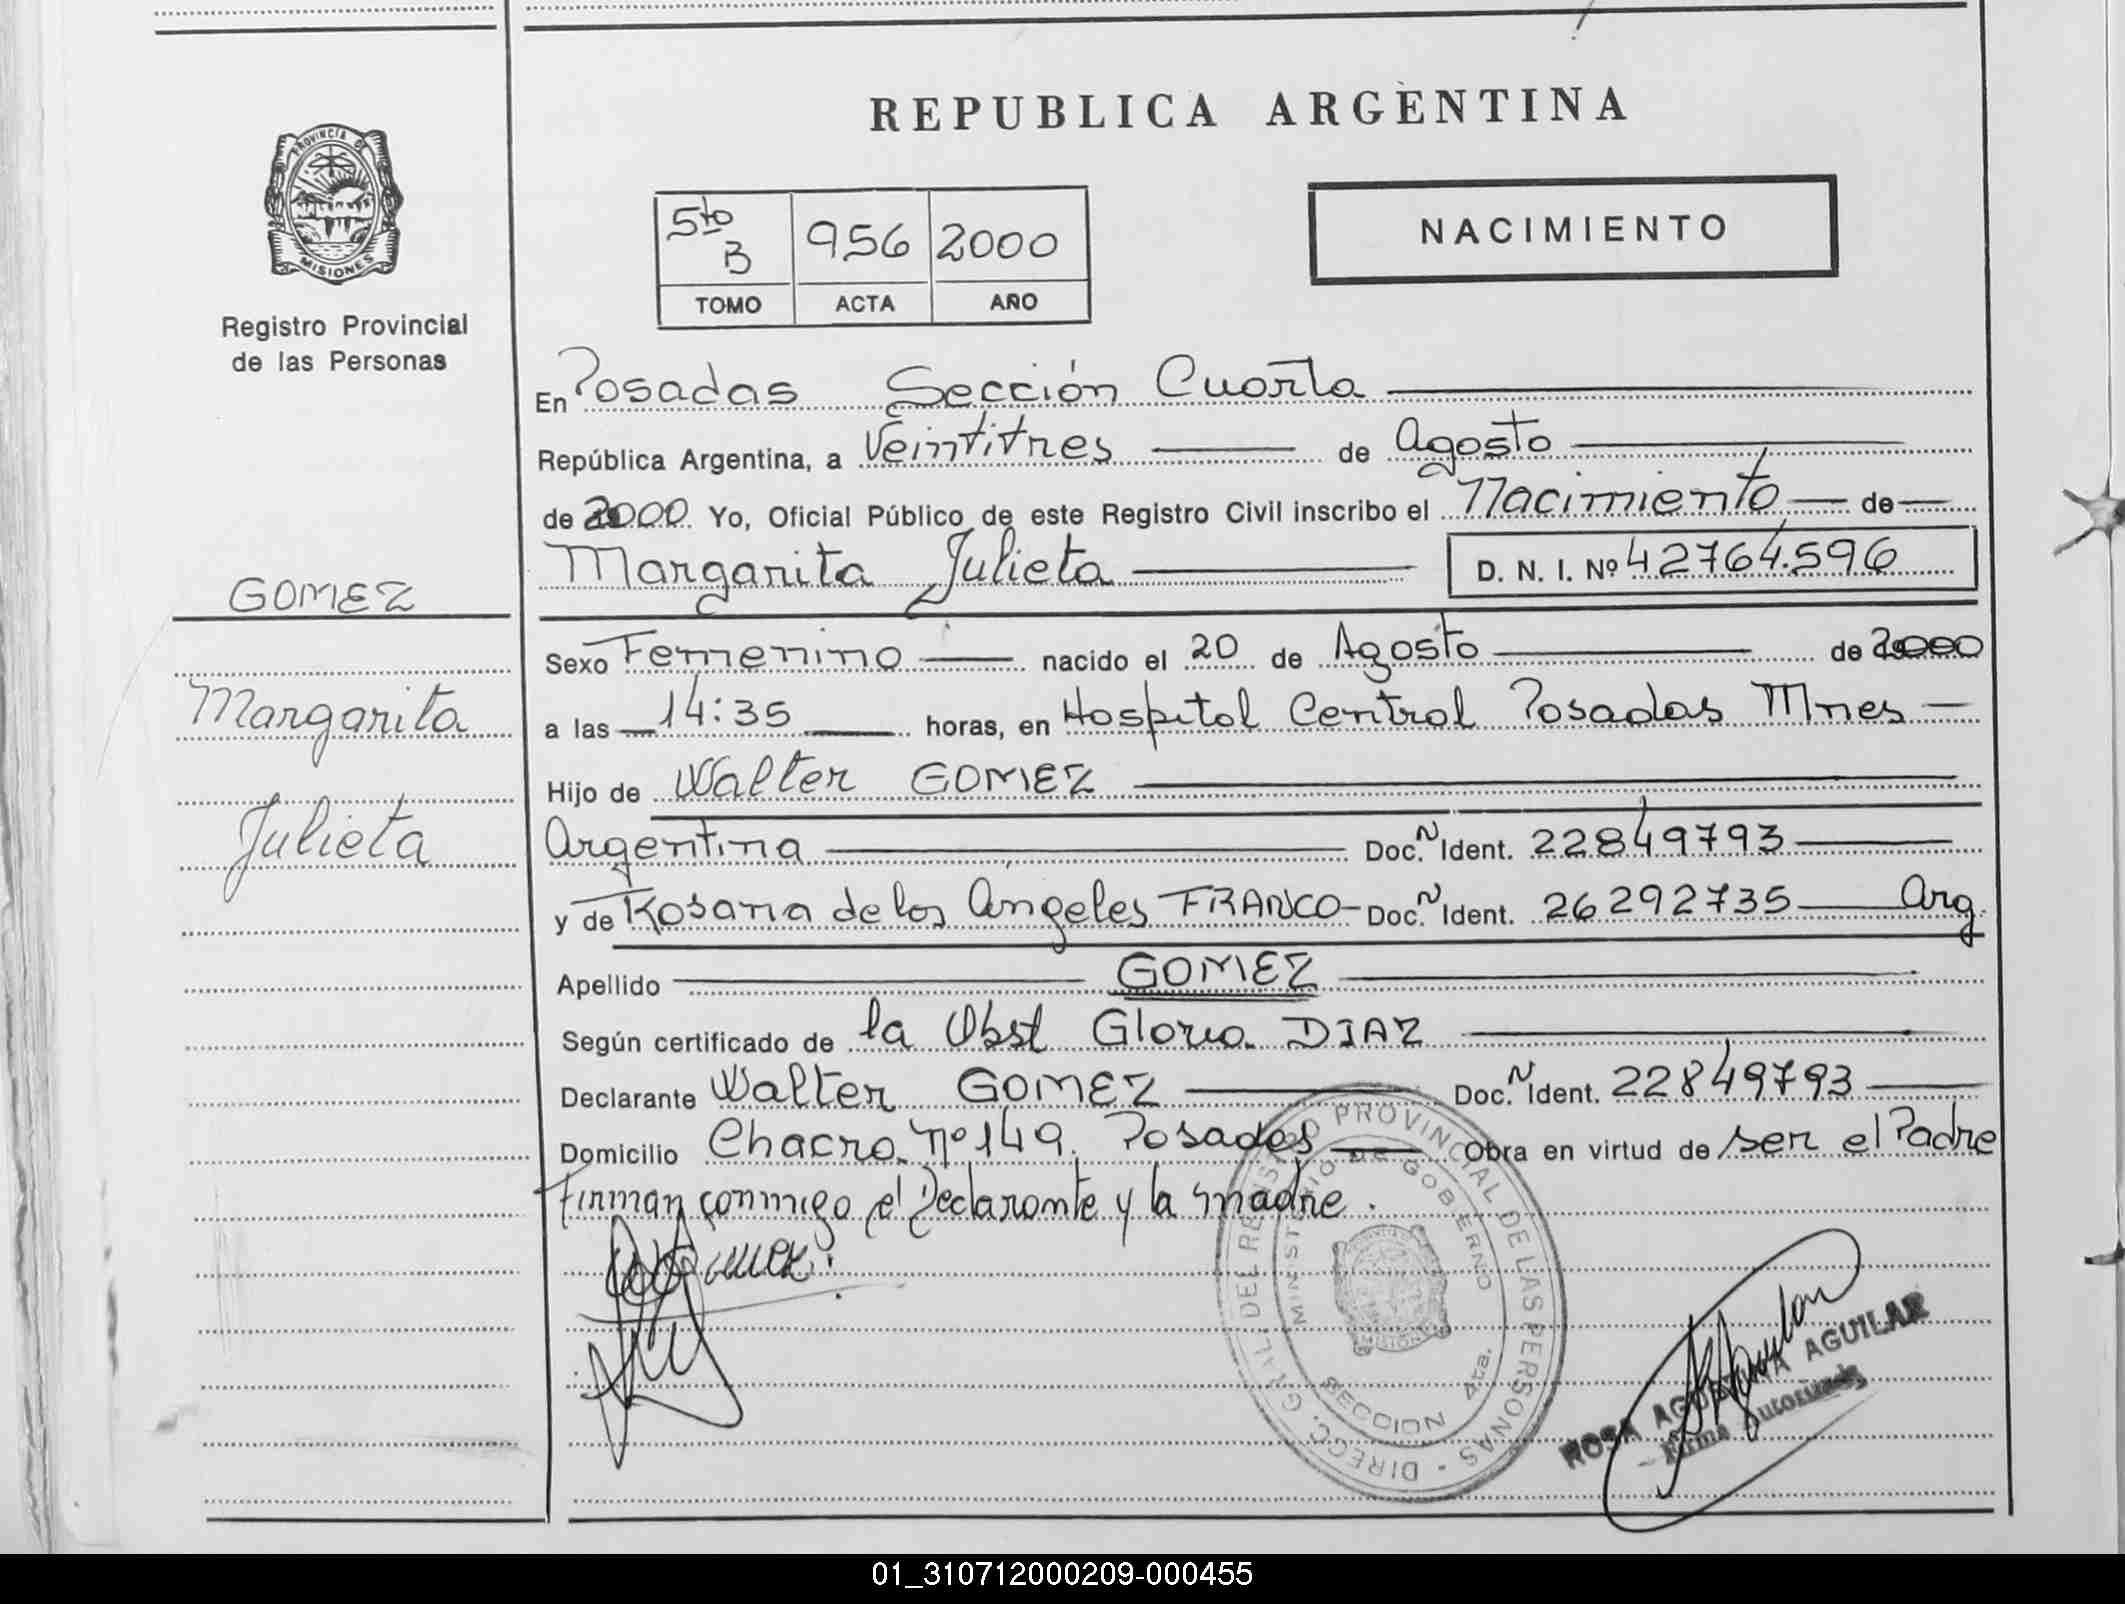 REPUBLICA ARGENTINA
PROVINCIA DE
MISIONES
Registro Provincial
de las Personas
5to B 956 2000
TOMO ACTA AÑO
NACIMIENTO
En Posadas Sección Cuarta
República Argentina, a Veintitres de Agosto
de 2000 Yo, Oficial Público de este Registro Civil inscribo el Nacimiento de
Margarita Julieta D. N. I. Nº 42764.596
GOMEZ
Margarita
Julieta
Sexo Femenino nacido el 20 de Agosto de 2000
a las 14:35 horas, en Hospital Central Posadas Mnes
Hijo de Walter GOMEZ
Argentina Doc. N Ident. 22849793
y de Rosana de los Angeles FRANCO Doc. N Ident. 26292735 Arg.
Apellido GOMEZ
Según certificado de la Obst Gloria DIAZ
Declarante Walter GOMEZ Doc. N Ident. 22849793
Domicilio Chacra Nº 149. Posadas Obra en virtud de ser el Padre
Firman conmigo el Declarante y la madre.
DIRECC. GRAL. DEL REGISTRO PROVINCIAL DE LAS PERSONAS
MINISTERIO DE GOBIERNO
SECCION 4ta.
ROSA AGUSTINA AGUILAR
Firma Autorizada
01_310712000209-000455